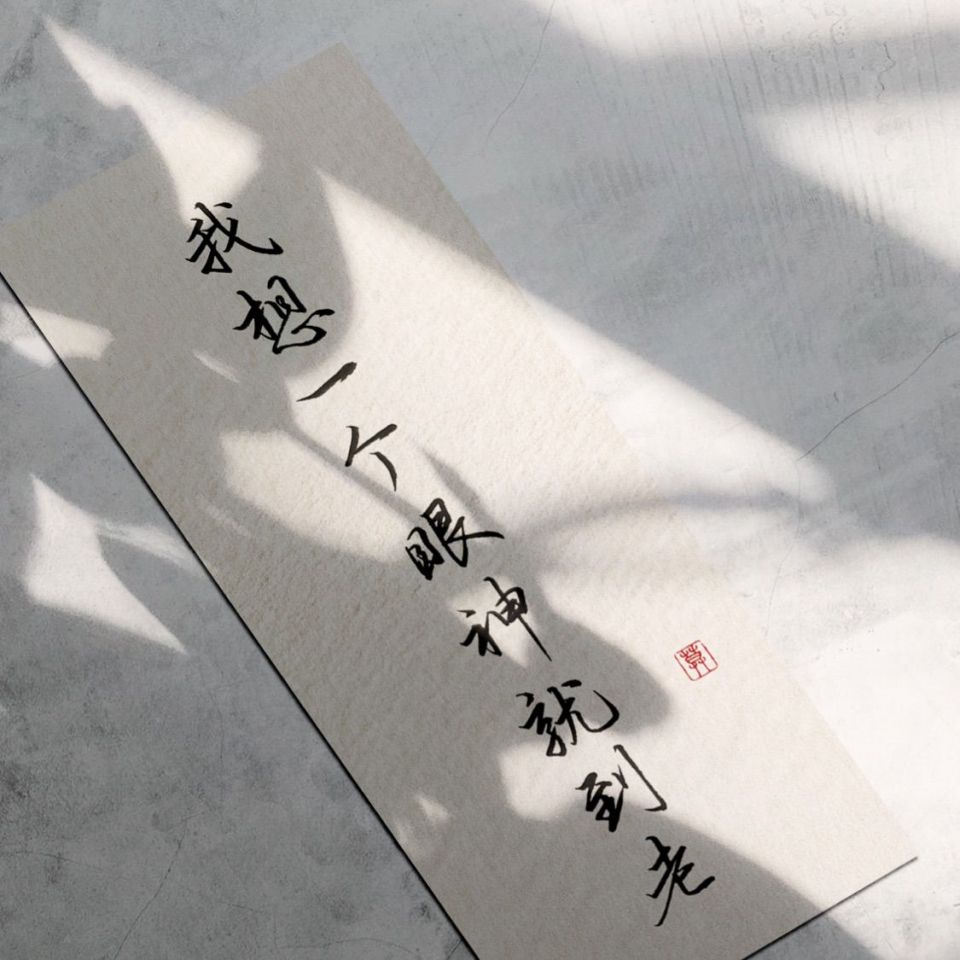 我想一个眼神就到老